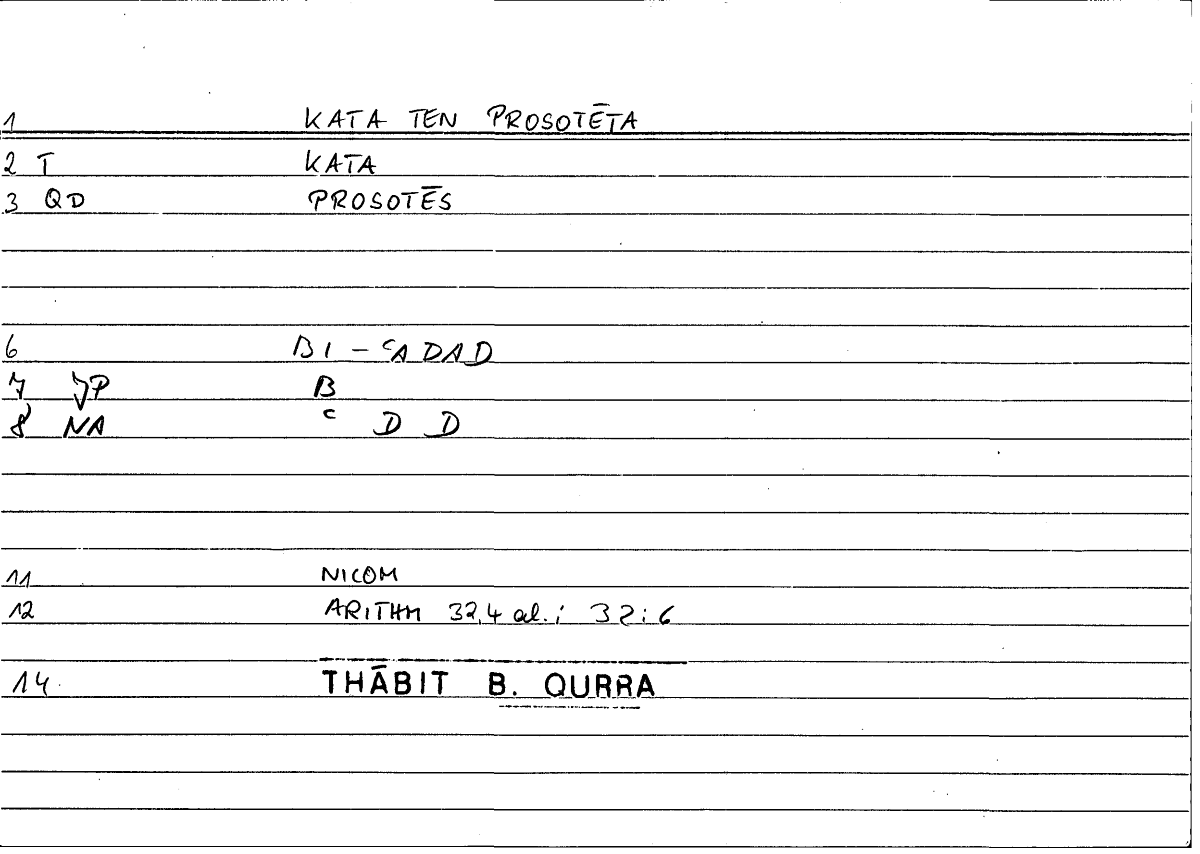 1 KATA TEN PROSOTĒTA
2 T KATA
3 QD PROSOTĒS
6 BI - ꜤADAD
7 JP B
8 NA Ꜥ D D
11 NICOM
12 ARITHM 32,4 al.; 32:6
14 THĀBIT B. QURRA